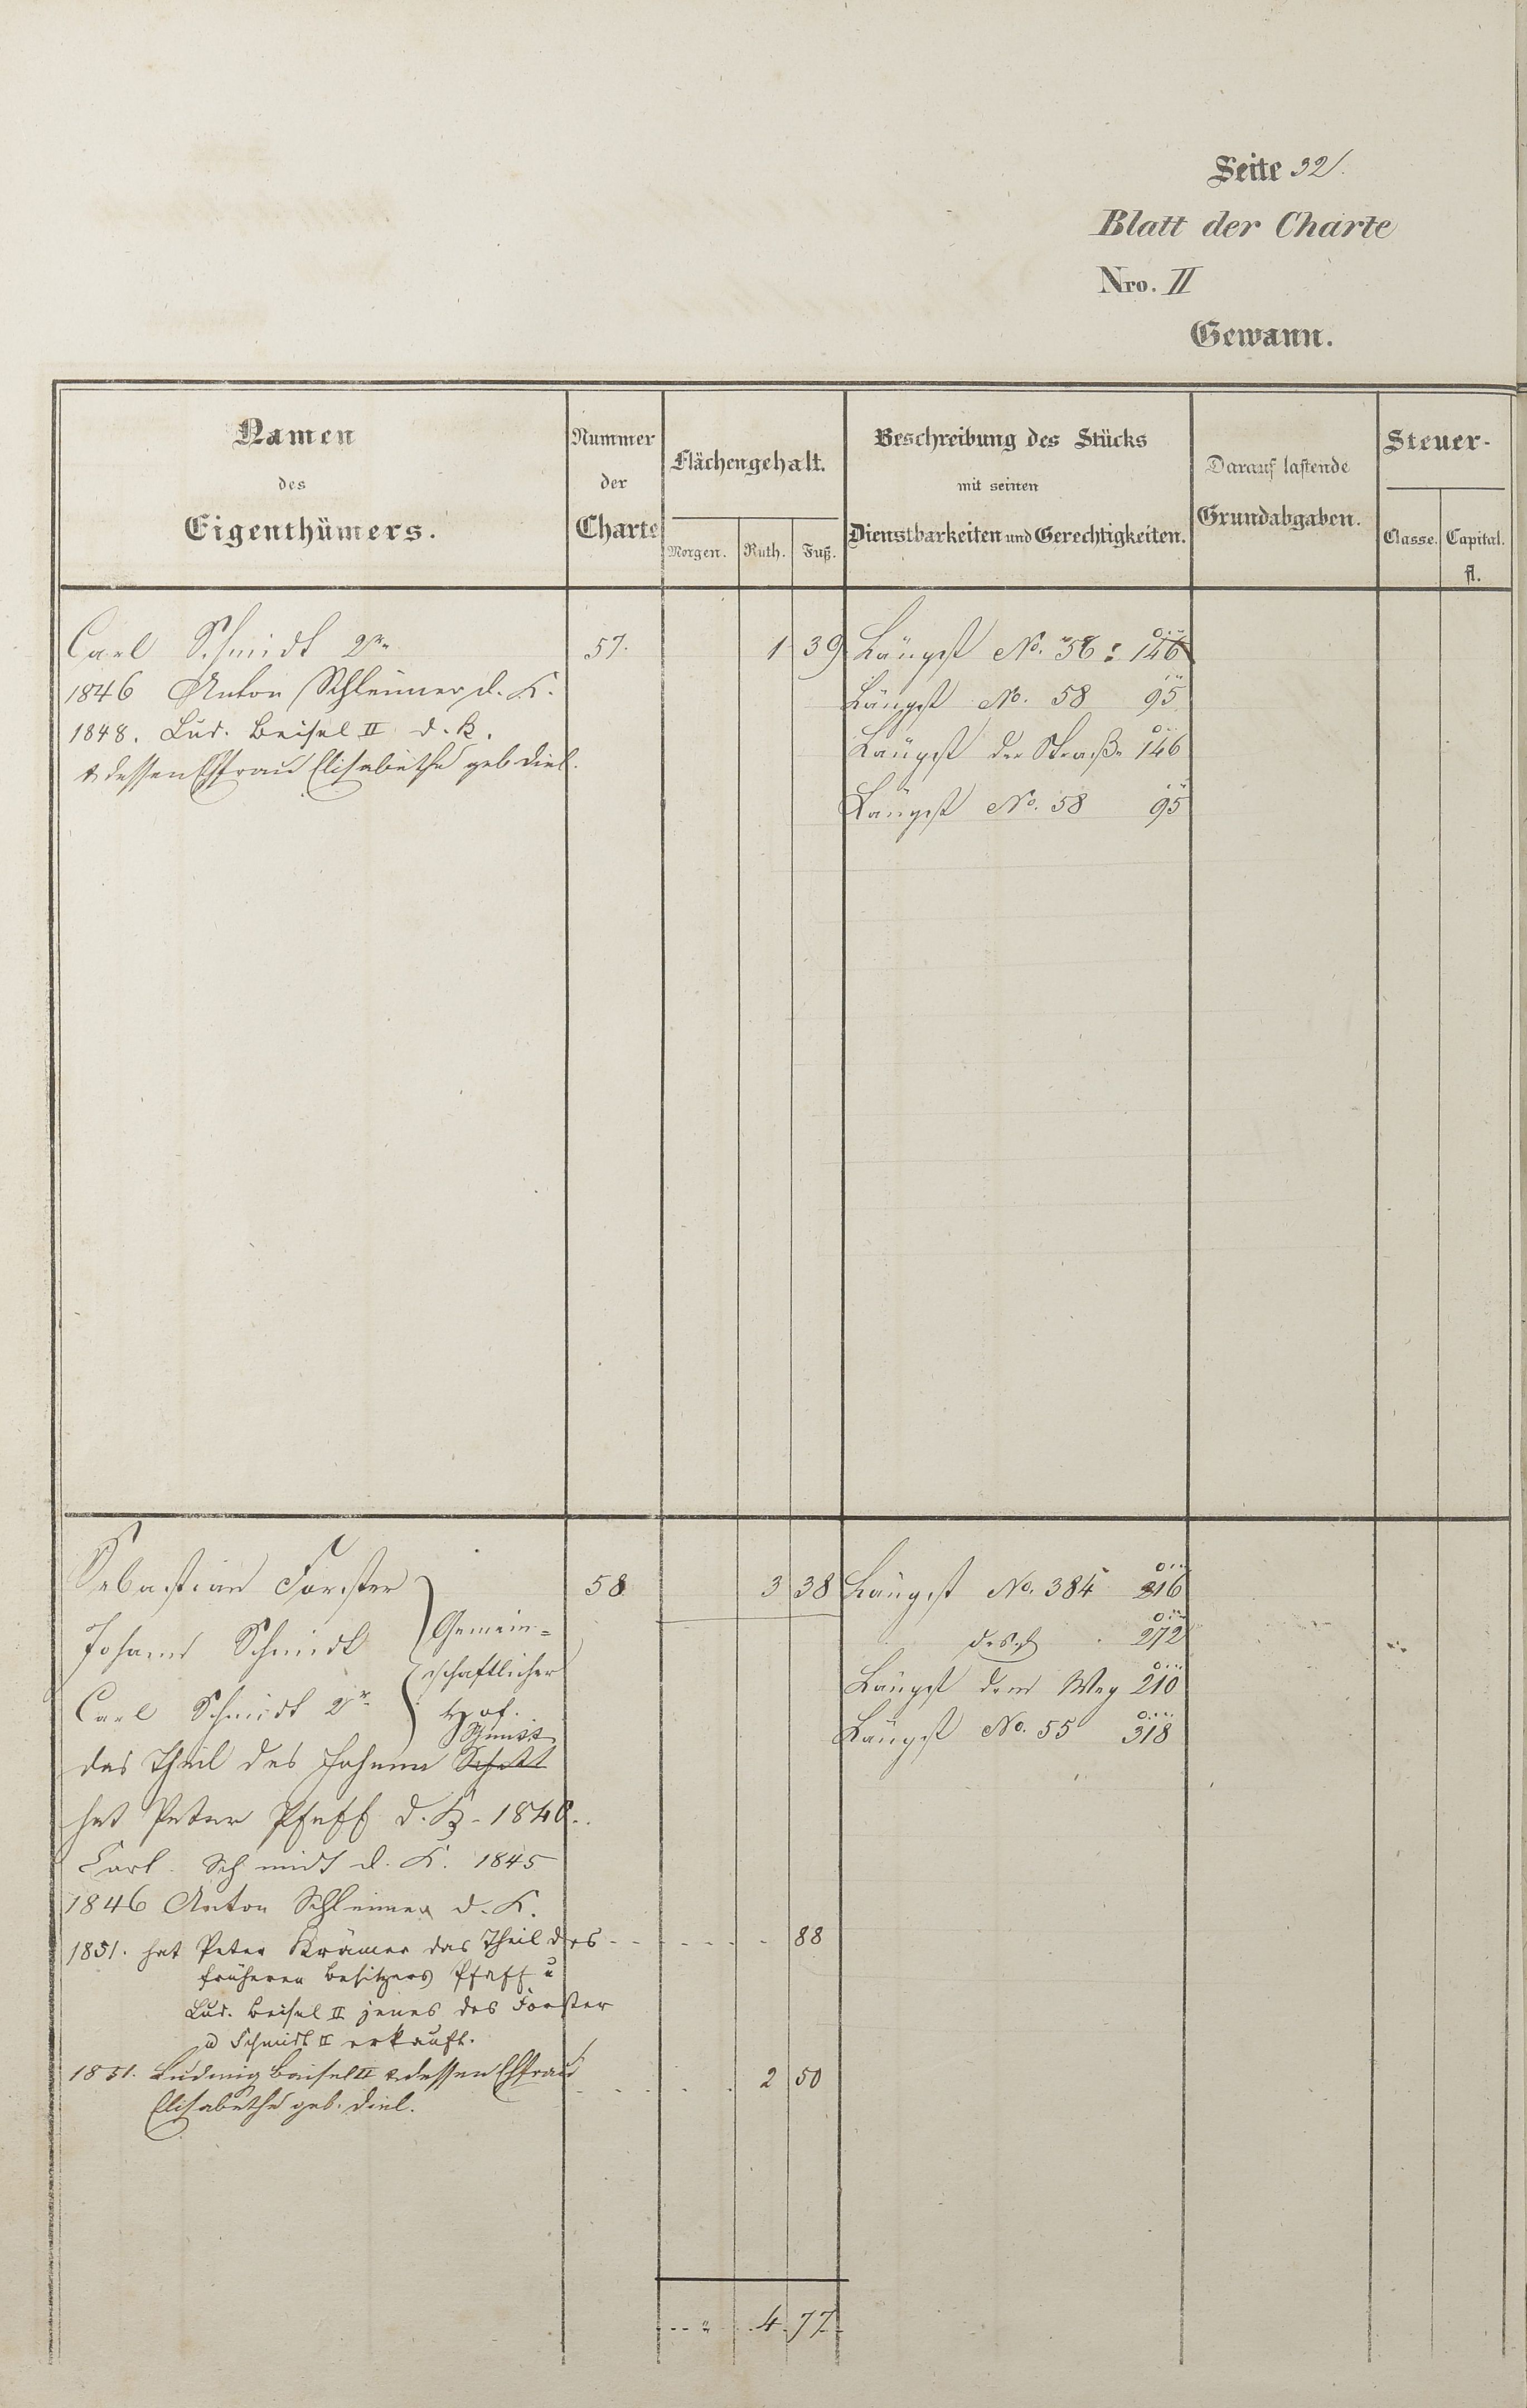 Seite 32.
Blatt der Charte
Nro. II
Gewann.
Namen des Eigenthümers.
Nummer der Charte
Flächengehalt.
Morgen. Ruth. Fuß.
Beschreibung des Stücks mit seinen Dienstbarkeiten und Gerechtigkeiten.
Darauf lastende Grundabgaben.
Steuer-
Classe. Capital. fl.
Carl Schmidt 2r 57. 1 39 Längst No. 56 : 146
1846 Anton Schleimer d. K. Längst No. 58 95
1848. Lud. Beisel II d. K. Längst der Straße 146
& dessen Ehfrau Elisabethe geb Diel.
Längst No. 58 95
Sebastian Forster 58 3 38 Längst No. 384 216
Johann Schmidt Gemein= desgl 272
schaftlicher Längst dem Weg 210
Carl Schmidt 2r Hof. Längst No. 55 318
Schmitt
das Theil des Johann Schott
hat Peter Pfaff d. K. 1840.
Carl Schmidt d. K. 1845
1846 Anton Schleimer d. K.
1851. hat Peter Krämer das Theil des 88
früheren Besitzers Pfaff u
Lud. Beisel II jenes des Forster
u Schmidt II erkauft.
1851. Ludwig Beisel II & dessen Ehfrau 2 50
Elisabethe geb. Diel.
" 4 77